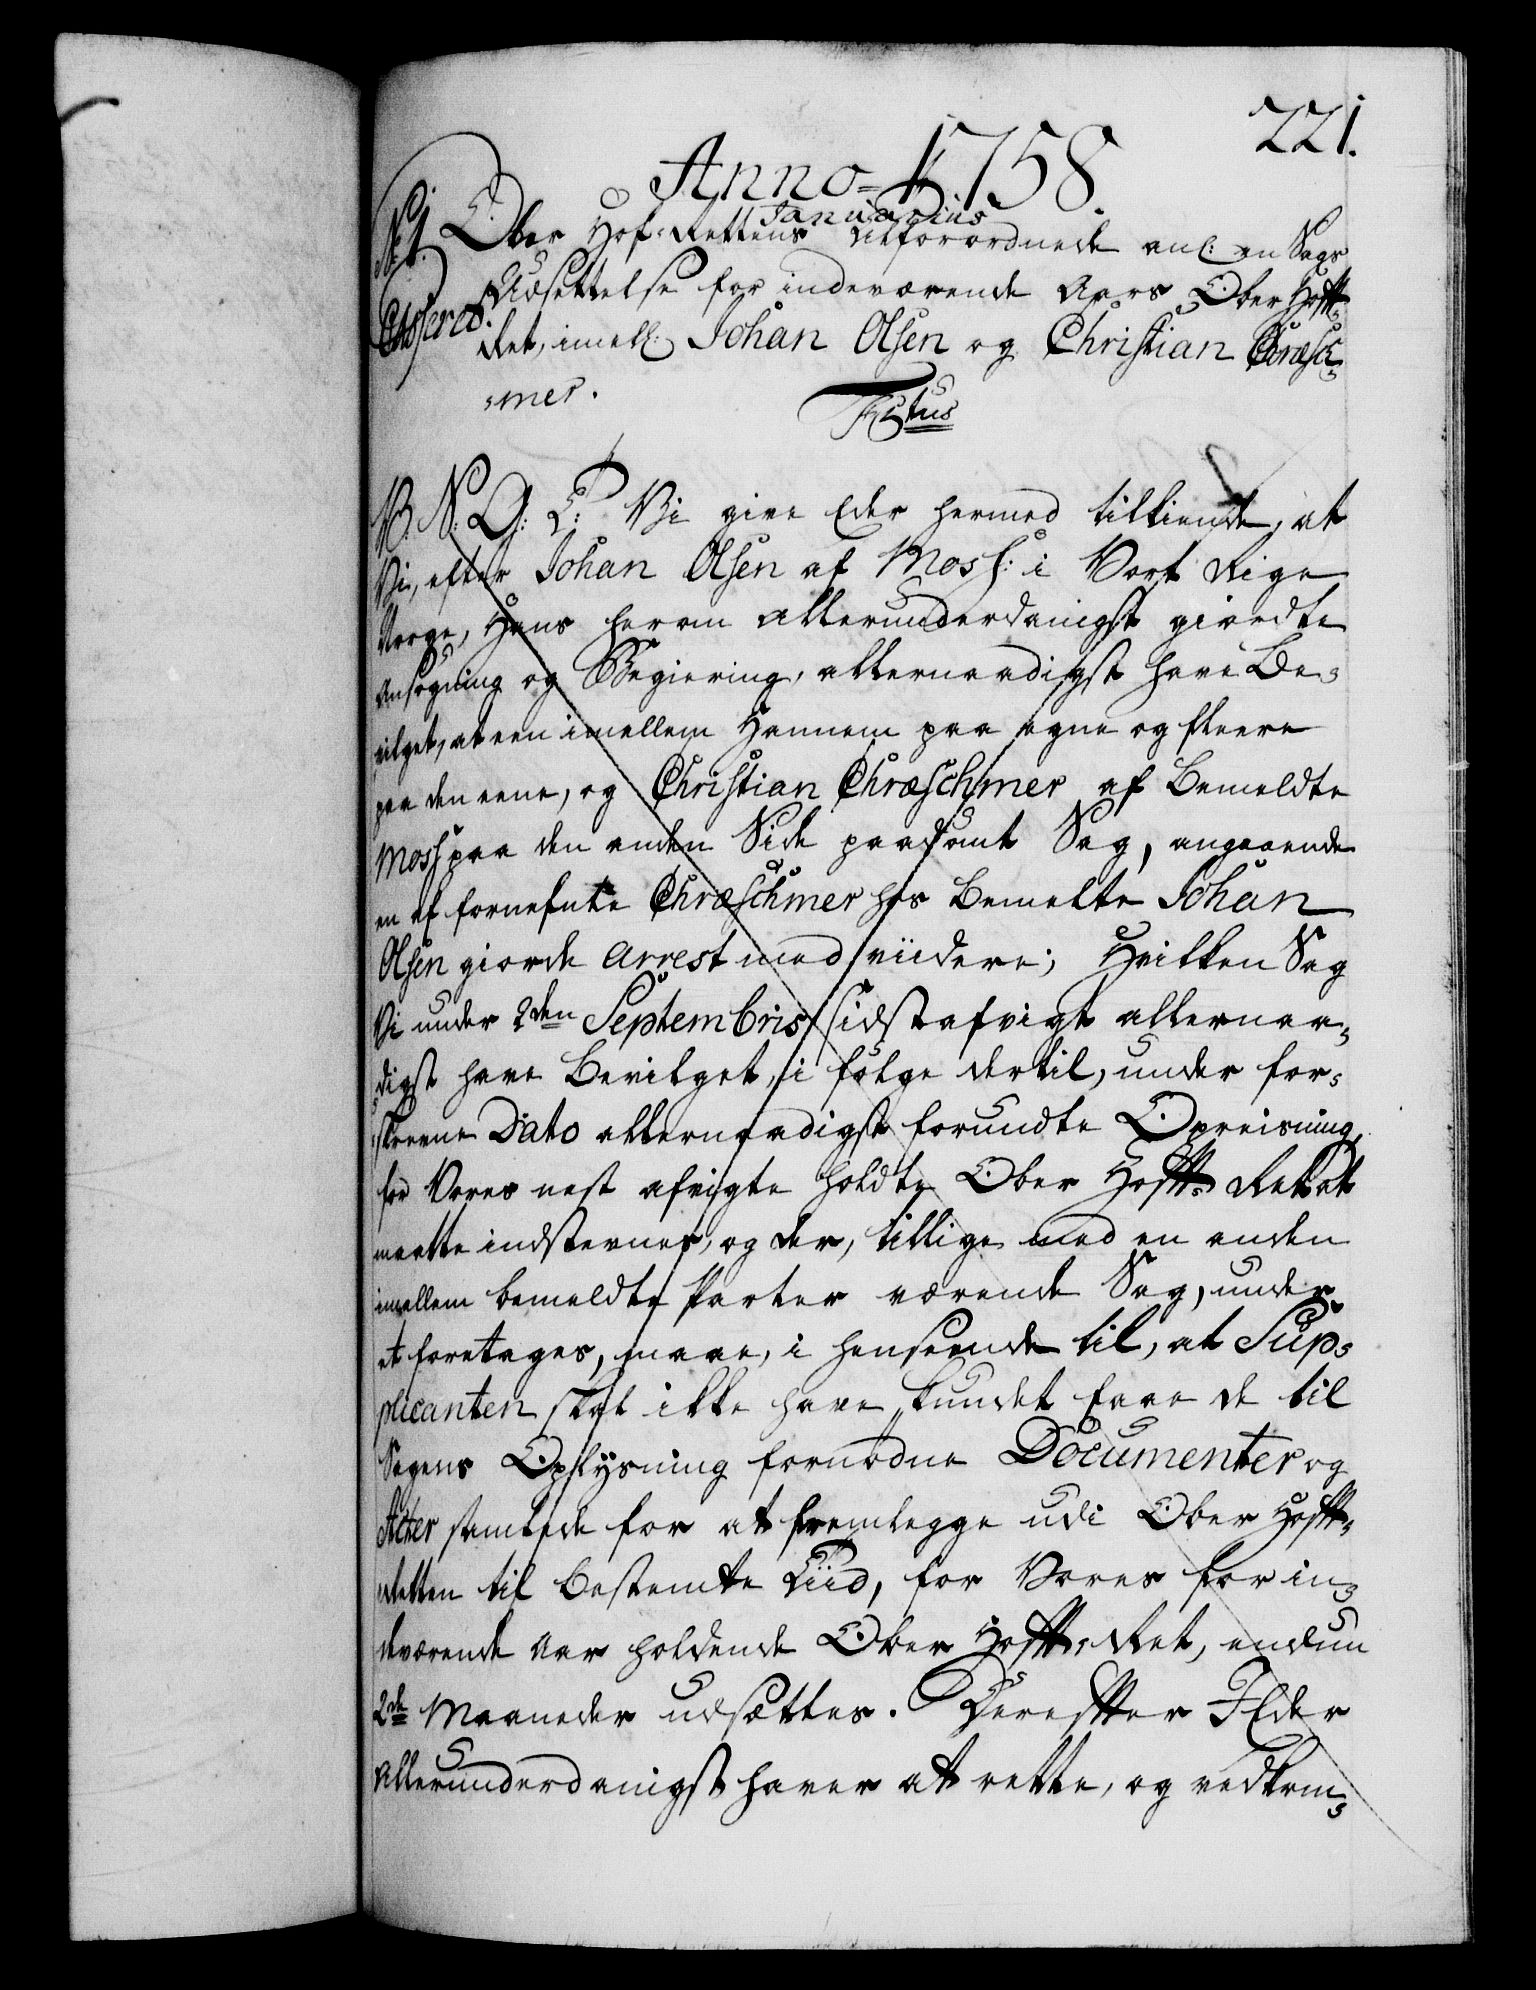 221.
Anno 1758.
Januarius
No 1. Ober Hof-Rettens tilforordnede anl: en Sags
Udsettelse for indeværende Aars Ober Hoff-
Ret, imell: Johan Olsen og Christian Chræsch-
mer.
Titus
V. S: G: T: Vi give Eder hermed tilkiende, at
Vi, efter Johan Olsen af Moss: i Vort Rige
Norge, Hans herom allerunderdanigst giordte
Ansøgning og Begiering, allernaadigst have Be-
vilget, at een imellem Hannem paa egne og fleere
paa den eene, og Christian Chræschmer af Bemeldte
Moss paa den anden Side paadømt Sag, angaaende
en af fornefnte Chræschmer hos Bemelte Johan
Olsen giorde Arrest med viidere; Hvilken Sag
Vi under 2den Septembris sidstafvigt allernaa-
digst have Bevilget, i følge dertil, under for-
skrevne Dato allernaadigst forundte Opreisning,
for Vores nest afvigte holdte Ober Hoff-Ret at
maatte indstevnes, og der, tillige med en anden
imellem bemeldte Parter værende Sag, under
et foretages, maae, i henseende til, at Sup-
plicanten skal ikke have kundet faae de til
Sagens Oplysning fornødne Documenter og
Acter samlede for at fremlegge udi Ober Hoff-
Retten til bestemte Tiid, for Vores for in-
deværende Aar holdende Ober Hoff-Ret, endnu
2de Maaneder udsættes. Derefter I Eder
allerunderdanigst haver at rette, og vedkom-